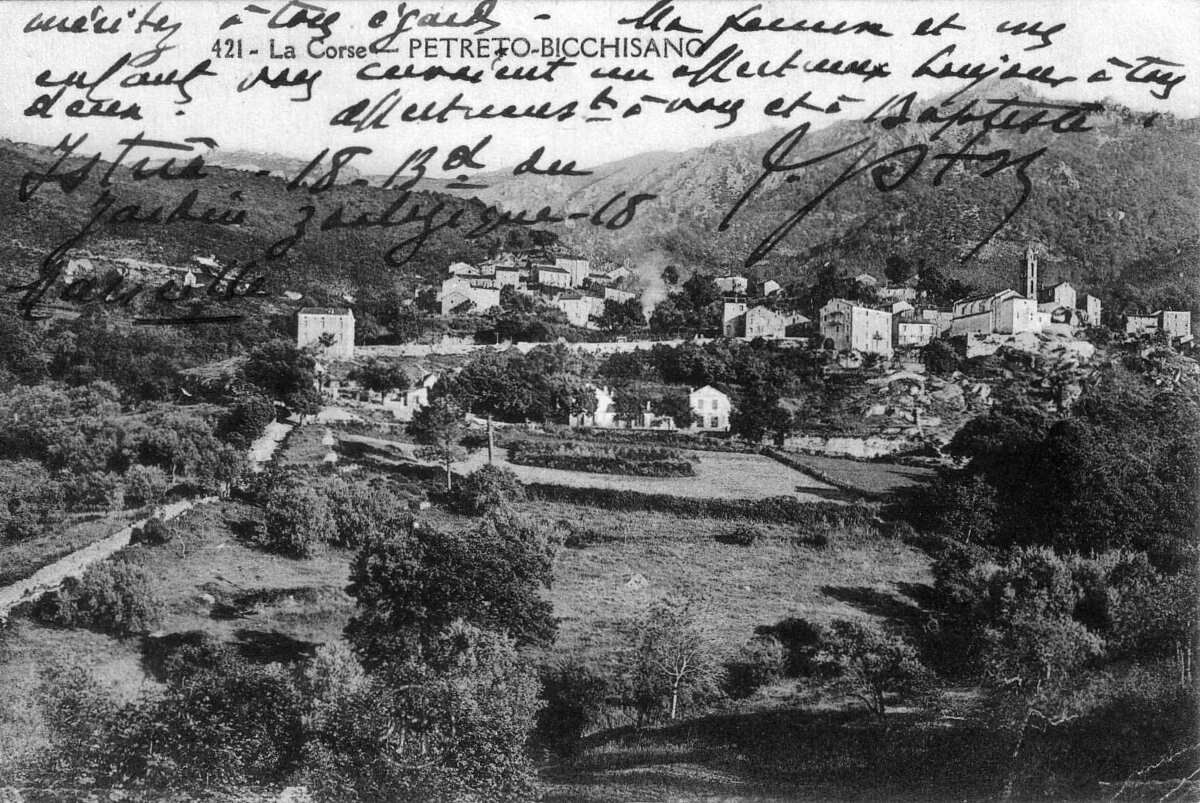 méritez à tous égards - Ma femme et mes
421 - La Corse - PETRETO-BICCHISANO
enfants vous envoient un affectueux bonjour à tous
deux. Affectueusts à vous et à Baptiste.
18 - Bd du
Jardin Zoologique - 18
Marseille